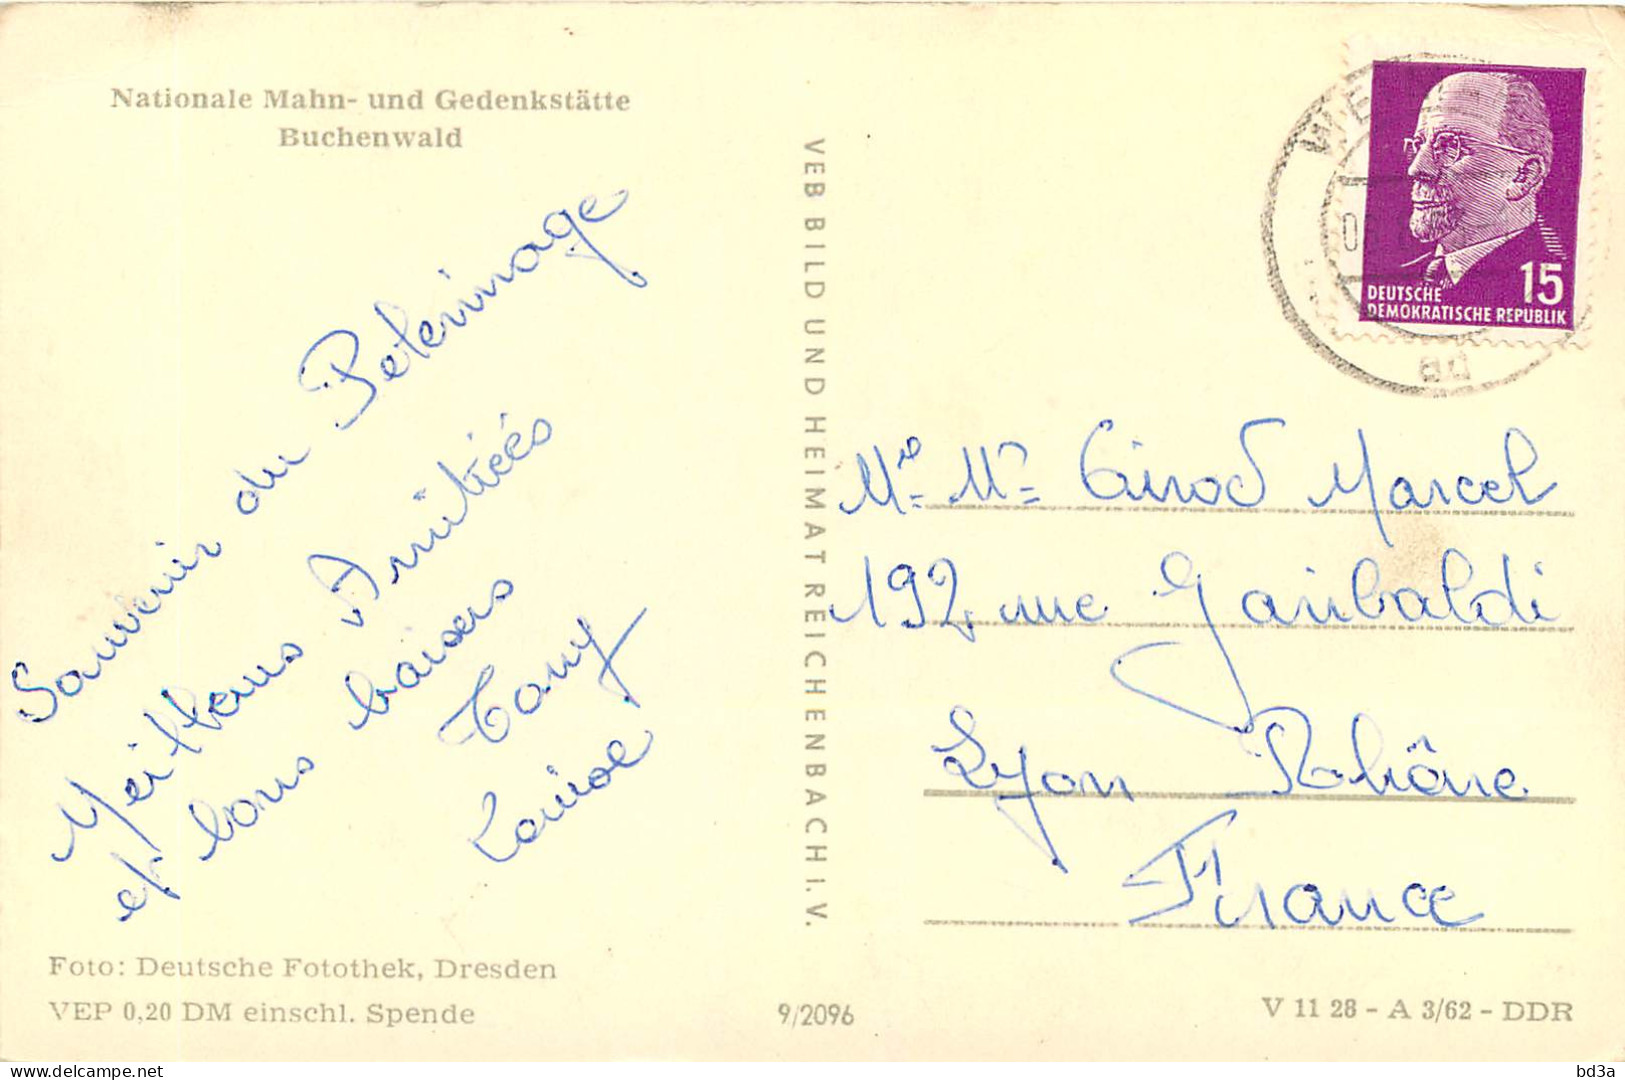 Nationale Mahn- und Gedenkstätte
Buchenwald
Souvenir du Pelerinage
Meilleurs Amitiéés
et bons baisers
Tony
Louise
Foto: Deutsche Fotothek, Dresden
VEP 0,20 DM einschl. Spende
VEB BILD UND HEIMAT REICHENBACH I. V.
9/2096
15
DEUTSCHE
DEMOKRATISCHE REPUBLIK
ad
Girod Marcel
192 rue Garibaldi
Lyon Rhône
France
V 11 28 - A 3/62 - DDR
bd3a